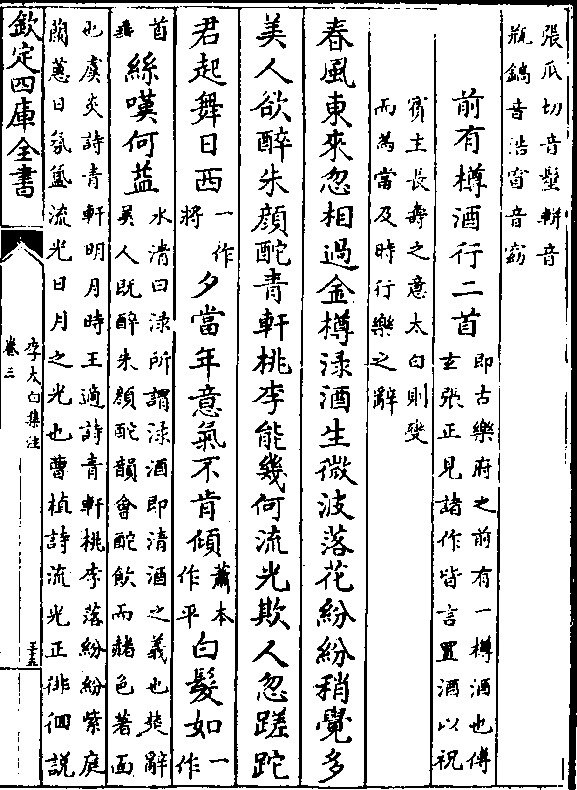 張瓜切音壁軿音
瓶鎬音浩窅音窈
前有樽酒行二首即古樂府之前有一樽酒也傅
玄張正見諸作皆言置酒以祝
賓主長壽之意太白則變
而為當及時行樂之辭
春風東來忽相過金樽渌酒生微波落花紛紛稍覺多
美人欲醉朱顔酡青軒桃李能幾何流光欺人忽蹉跎
君起舞日西一作將夕當年意氣不肯傾蕭本作平白髮如一作
首垂絲嘆何益水清曰渌所謂渌酒即清酒之義也楚辭
美人既醉朱顔酡韻會酡飲而赭色著面
也虞炎詩青軒明月時王適詩青軒桃李落紛紛紫庭
蘭蕙日氛氲流光日月之光也曹植詩流光正徘徊説
欽定四庫全書
李太白集注
卷三